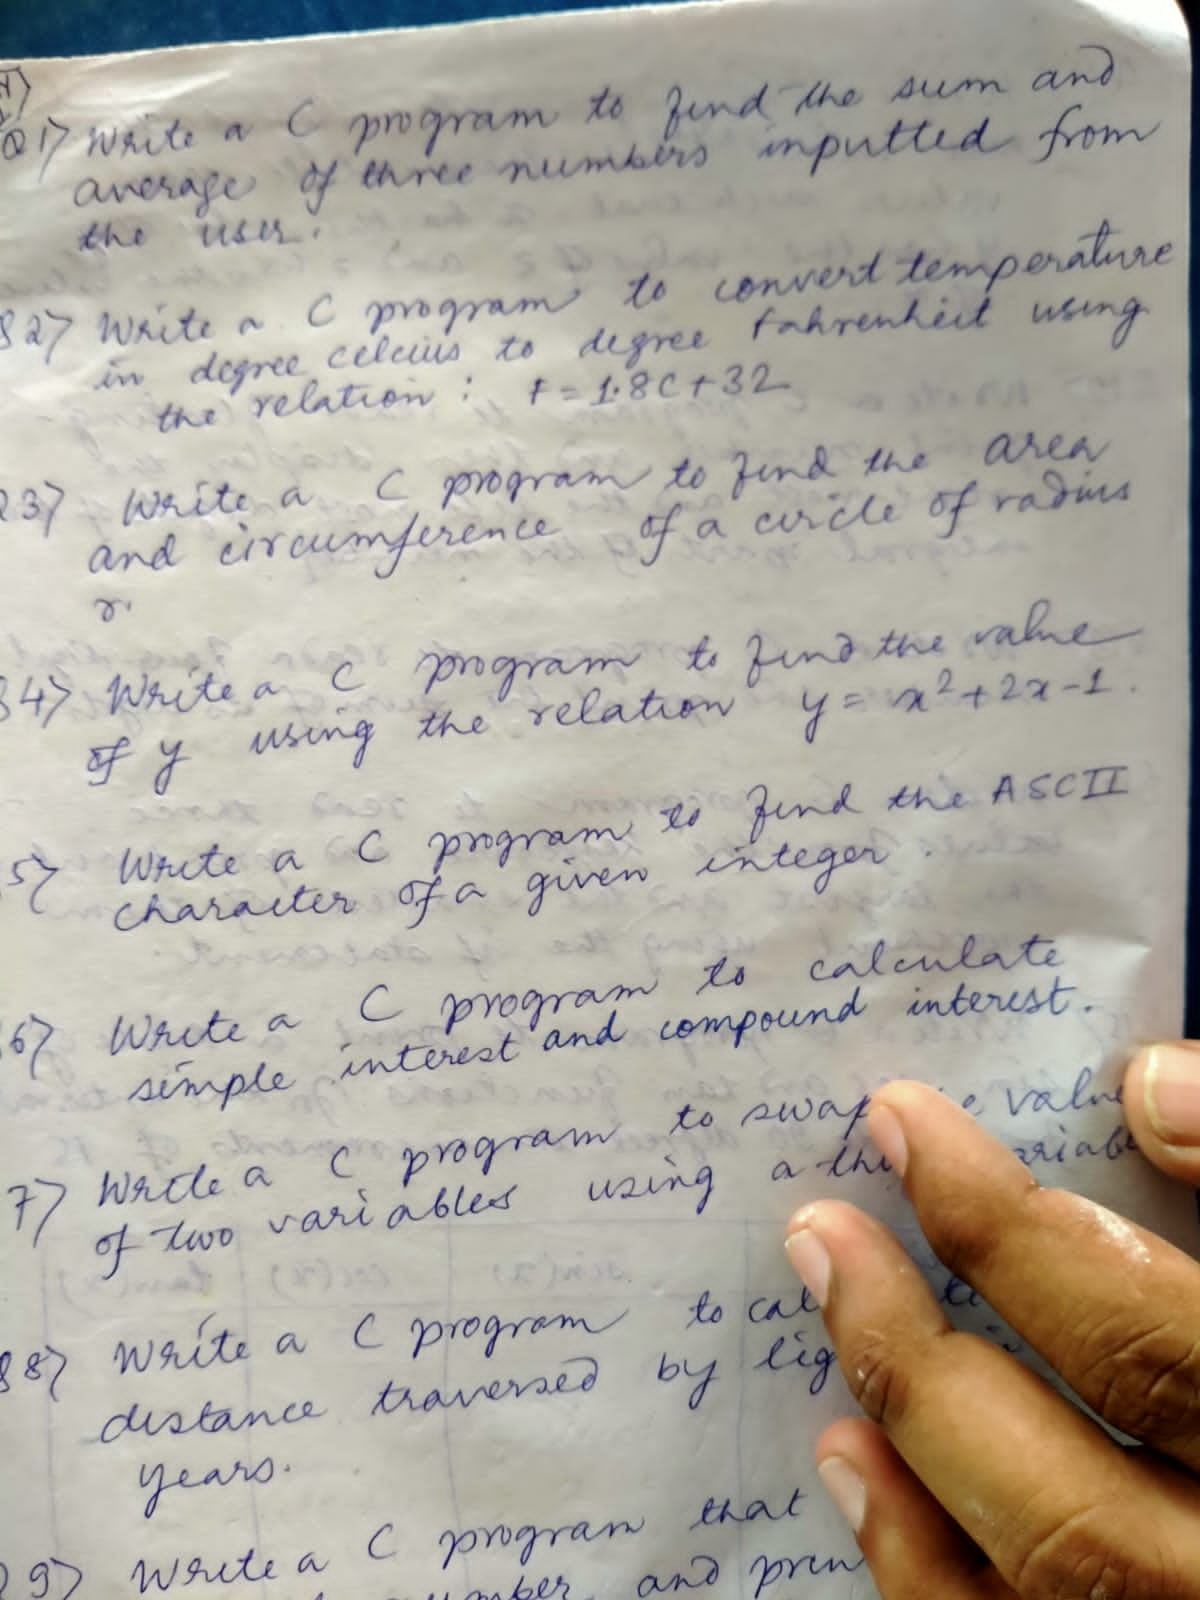 Q1) Write a C program to find the sum and
average of three numbers inputted from
the user.
82) Write a C program to convert temperature
in degree celcius to degree Fahrenheit using
the relation : F = 1.8C + 32
23) Write a C program to find the area
and circumference of a circle of radius
r.
84) Write a C program to find the value
of y using the relation y = x² + 2x - 1.
5) Write a C program to find the ASCII
character of a given integer.
6) Write a C program to calculate
simple interest and compound interest.
7) Write a C program to swap value
of two variables using a
88) Write a C program to
distance traversed by
years.
9) Write a C program that
number and